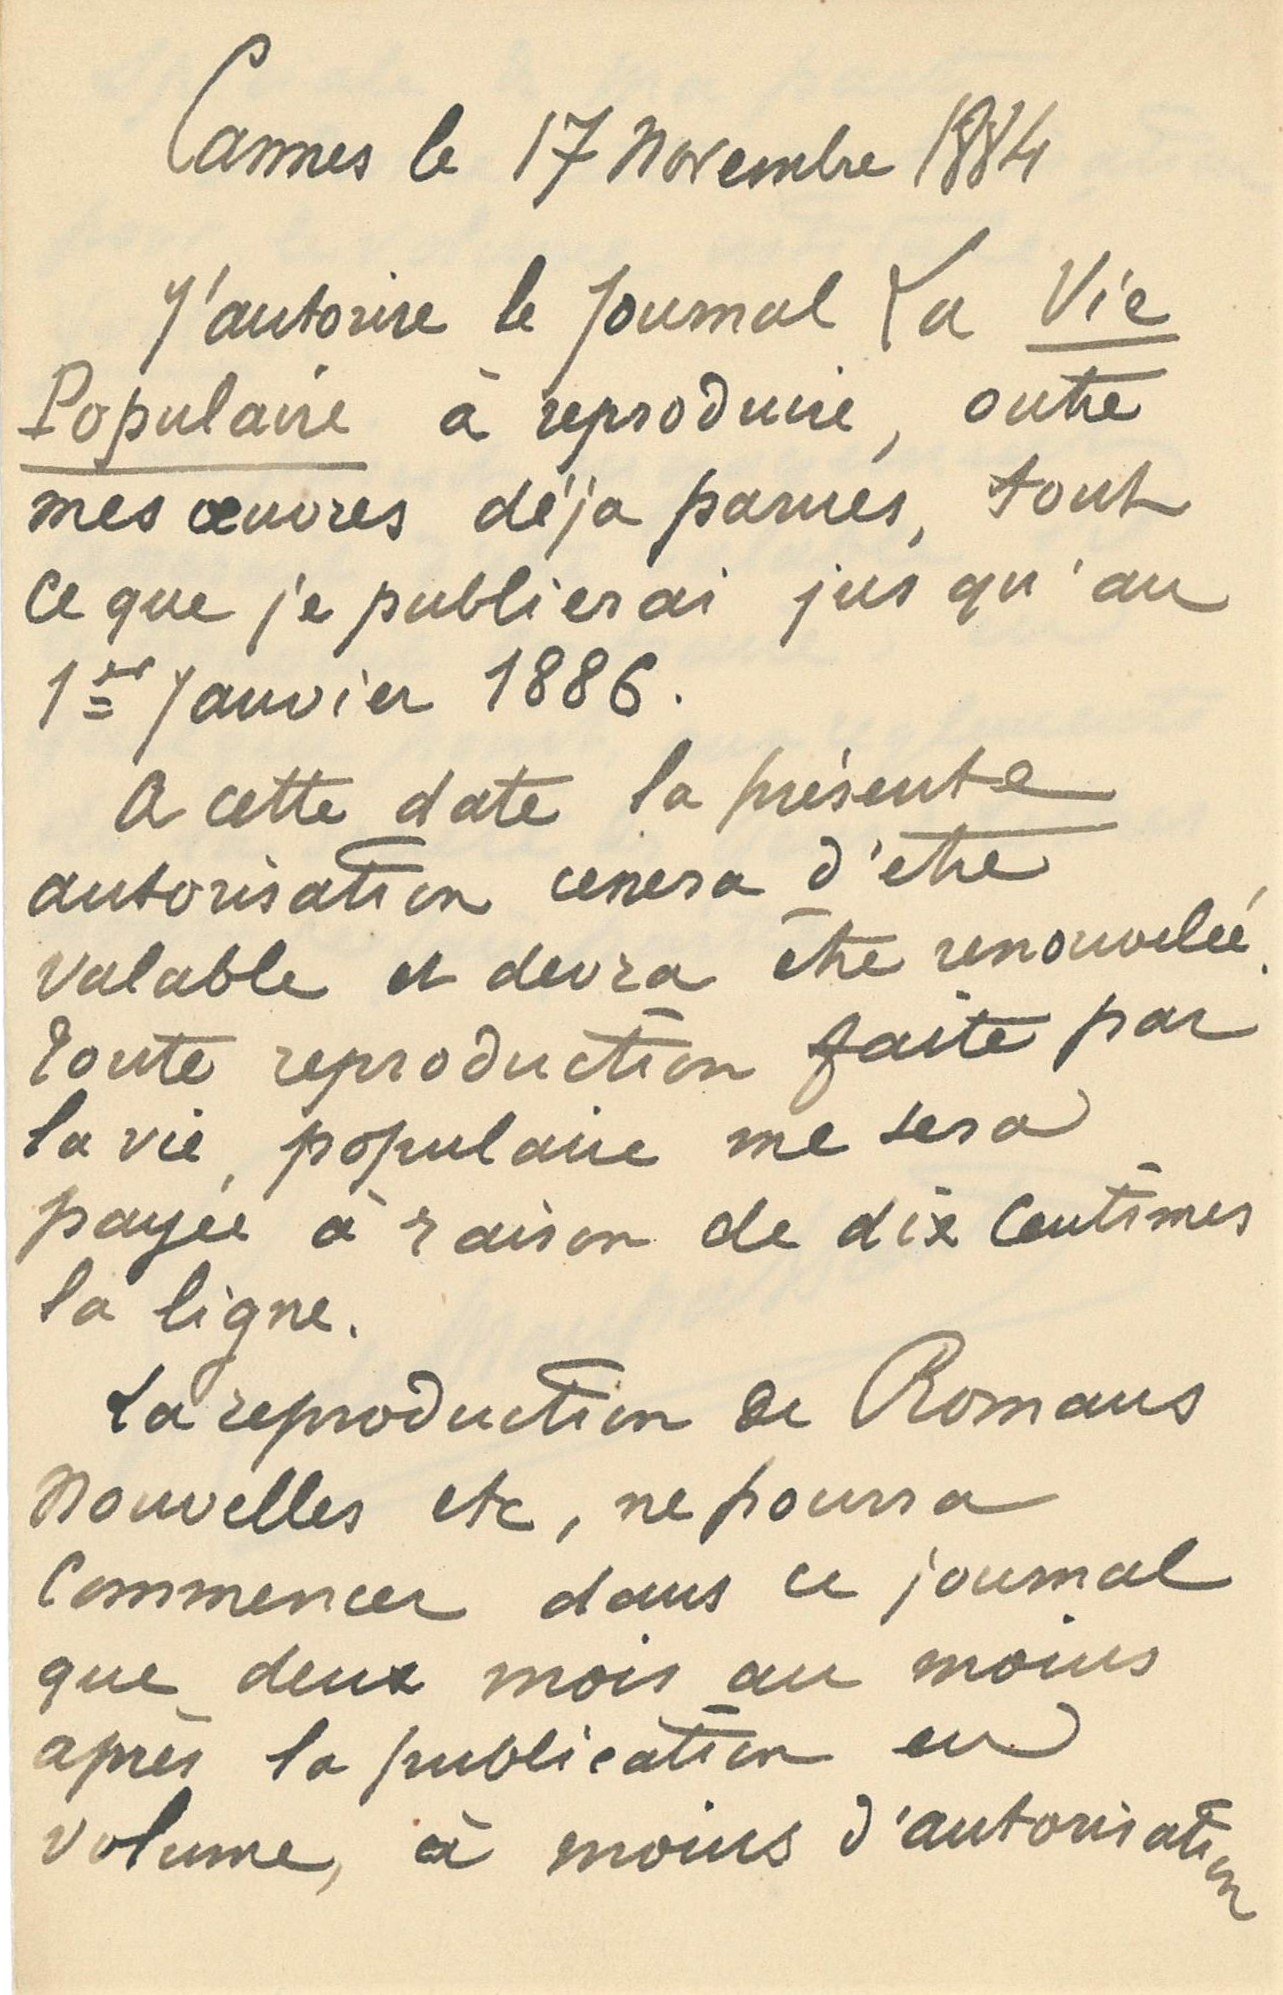 Cannes le 17 Novembre 1884
J'autorise le Journal La Vie
Populaire à reproduire, outre
mes œuvres déja parues, tout
ce que je publierai jusqu'au
1er Janvier 1886.
A cette date la présente
autorisation cessera d'etre
valable et devra être renouvelée.
Toute reproduction faite par
la vie populaire me sera
payée à raison de dix centimes
la ligne.
La reproduction de Romans
Nouvelles etc, ne pourra
Commencer dans ce journal
que deux mois au moins
après la publication en
volume, à moins d'autorisation